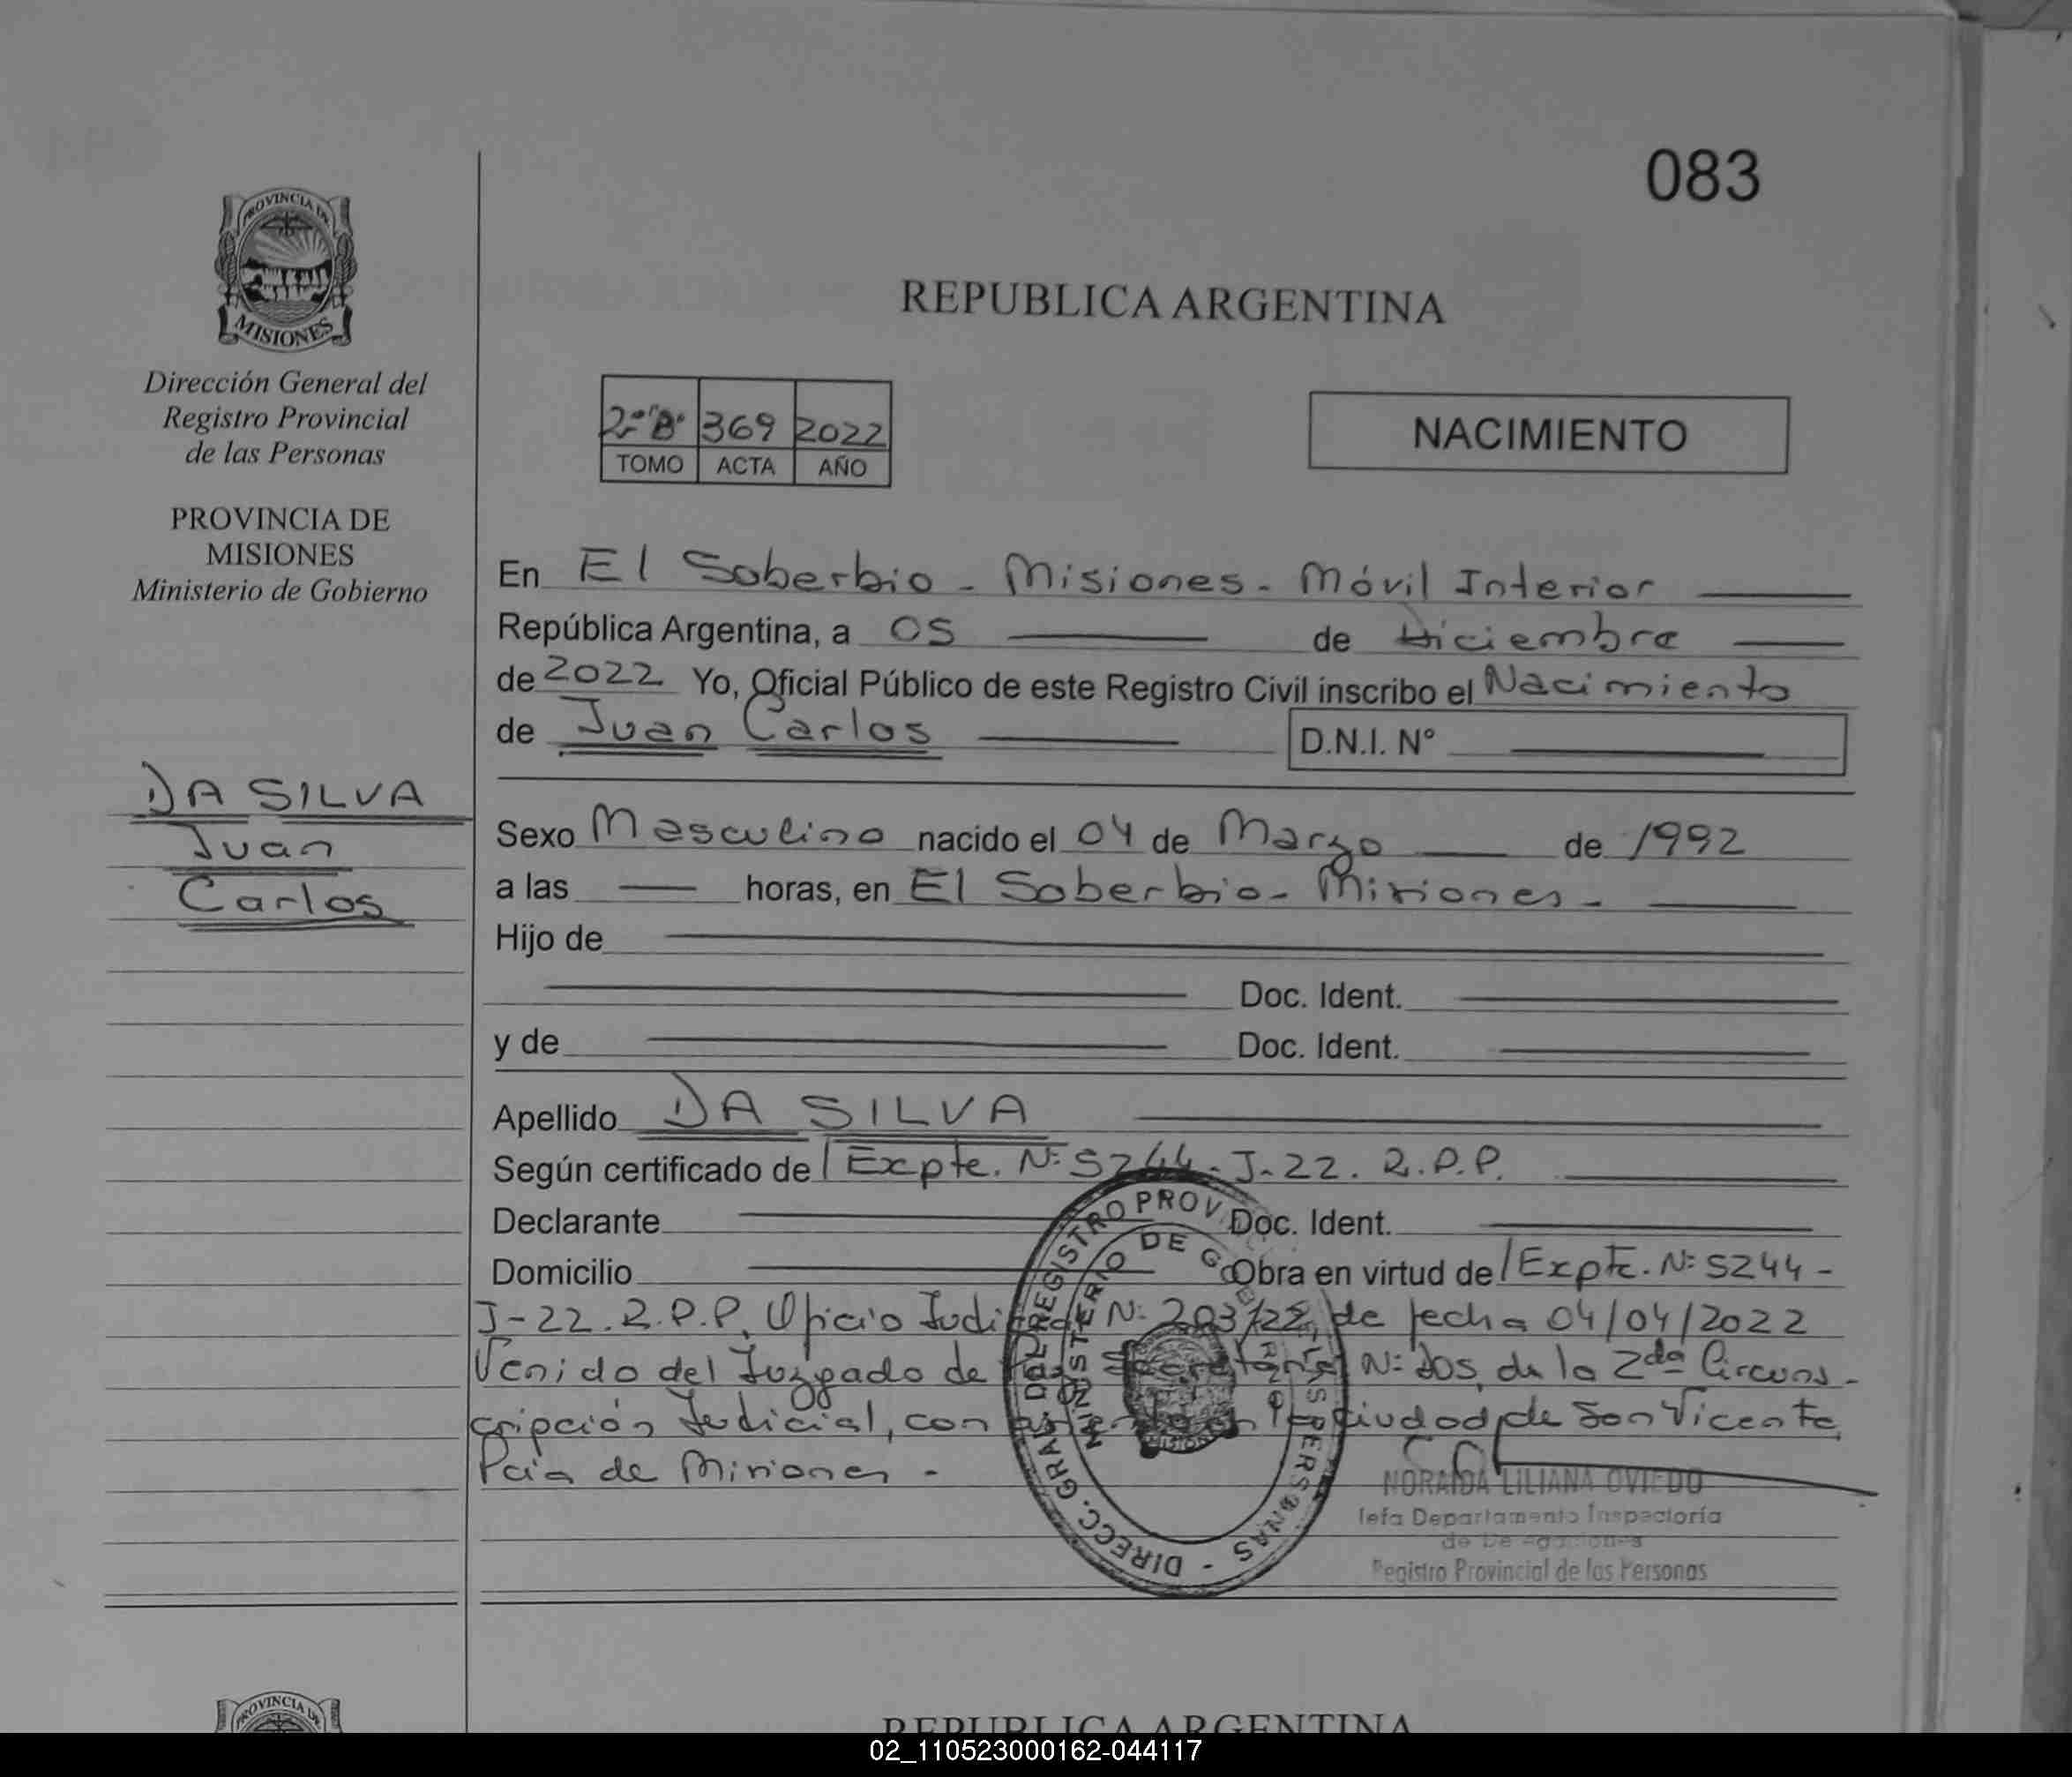 083
PROVINCIA DE
MISIONES
Dirección General del
Registro Provincial
de las Personas
PROVINCIA DE
MISIONES
Ministerio de Gobierno
DA SILVA
Juan
Carlos
REPUBLICA ARGENTINA
2º "B" 369 2022
TOMO ACTA AÑO
NACIMIENTO
En El Soberbio - Misiones - Móvil Interior
República Argentina, a 05 de Diciembre
de 2022 Yo, Oficial Público de este Registro Civil inscribo el Nacimiento
de Juan Carlos D.N.I. N°
Sexo Masculino nacido el 04 de Marzo de 1992
a las horas, en El Soberbio - Misiones -
Hijo de
Doc. Ident.
y de Doc. Ident.
Apellido DA SILVA
Según certificado de / Expte. Nº 5244 - J-22. R.P.P.
Declarante Doc. Ident.
Domicilio Obra en virtud de / Expte. Nº 5244 -
J-22. R.P.P. Oficio Judicial Nº 203/22, de fecha 04/04/2022
Venido del Juzgado de Secretaría Nº Dos, de la 2da Circuns-
cripción Judicial, con asiento en la ciudad de San Vicente,
Pcia de Misiones -
DIRECC. GRAL. DEL REGISTRO PROV. PERSONAS -
MINISTERIO DE
NORAIDA LILIANA OVIEDO
Jefa Departamento Inspectoría
Registro Provincial de las Personas
PROVINCIA DE
REPUBLICA ARGENTINA
02_110523000162-044117